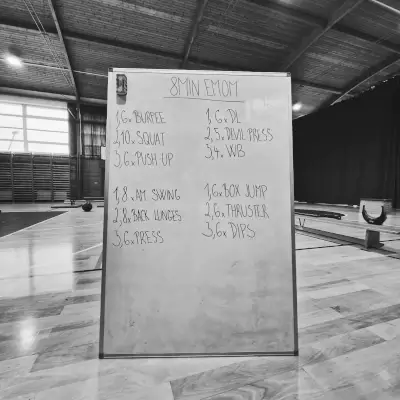 8MIN EMOM
1, 6x BURPEE
2, 10x SQUAT
3, 6x PUSH UP
1, 6x DL
2, 5x DEVIL PRESS
3, 4x WB
1, 8x AM SWING
2, 8x BACK LUNGES
3, 6x PRESS
1, 6x BOX JUMP
2, 6x THRUSTER
3, 6x DIPS